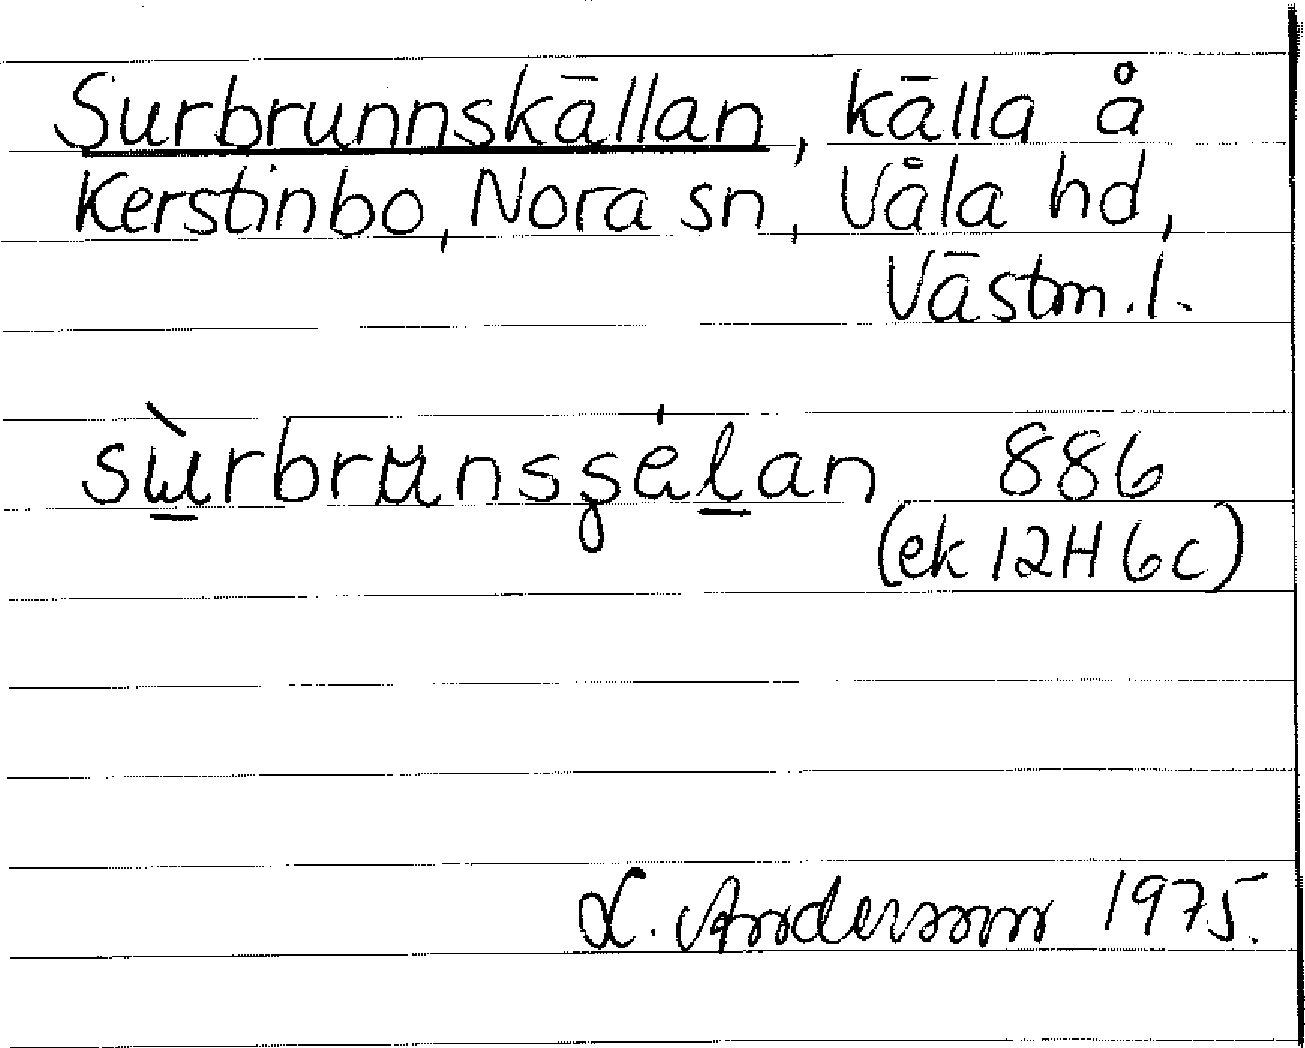 Surbrunnskällan, källa å
Kerstinbo, Nora sn, Våla hd,
Västm.l.
sùrbrunsʂélan 886
(ek 12H 6c)
L. Andersson 1975.